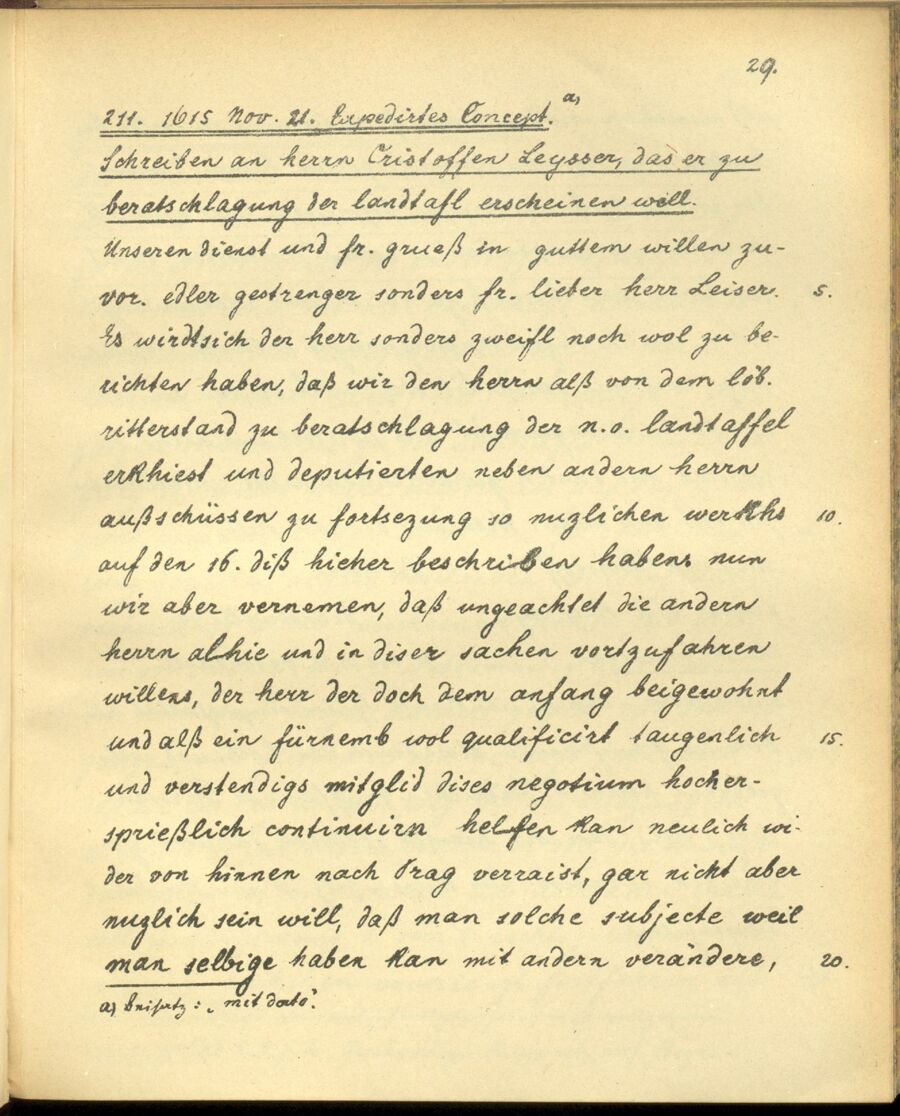 29.
211. 1615 Nov. 21. Expedirtes Concept. a)
Schreiben an herrn Cristoffen Leysser, das er zu
beratschlagung der landtafl erscheinen woll.
Unseren dienst und fr. grueß in guttem willen zu-
vor. edler gestrenger sonders fr. lieber herr Leiser. 5.
Es wirdt sich der herr sonders zweifl noch wol zu be-
richten haben, daß wir den herrn alß von dem löb.
ritterstand zu beratschlagung der n.o. landtaffel
erkhiest und deputierten neben andern herrn
außschüssen zu fortsezung so nuzlichen werkhs 10.
auf den 16. diß hieher beschriben haben. nun
wir aber vernemen, daß ungeachtet die andern
herrn alhie und in diser sachen vortzufahren
willens, der herr der doch dem anfang beigewohnt
und alß ein fürnemb wol qualificirt taugenlich 15.
und verstendigs mitglid dises negotium hocher-
sprießlich continuirn helfen kan neulich wi-
der von hinnen nach Prag verraist, gar nicht aber
nuzlich sein will, daß man solche subjecte weil
man selbige haben kan mit andern verändere, 20.
a) Beisatz: „mit dato".